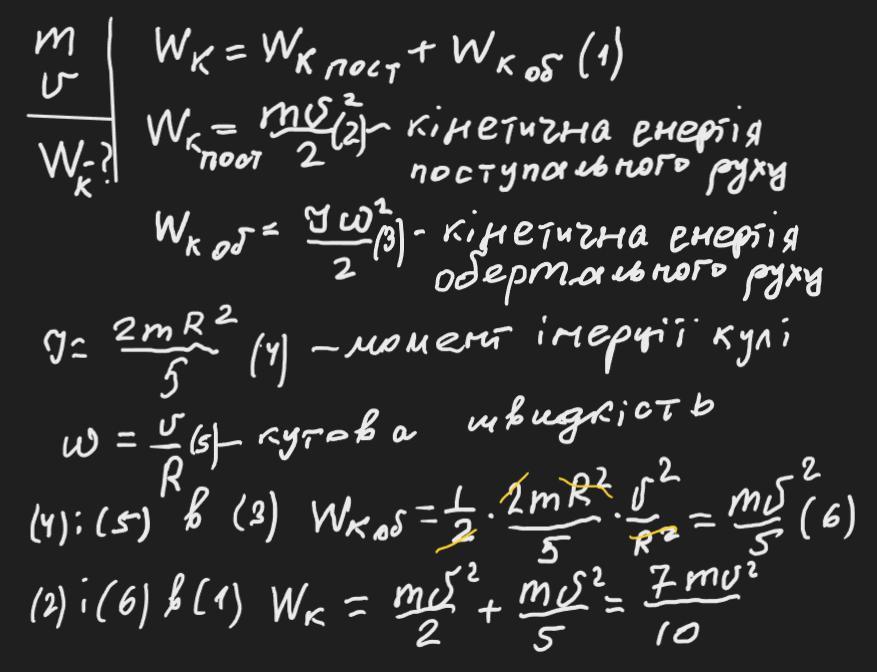 m
v
W_K - ?
W_K = W_K пост + W_K об (1)
W_K пост = mv²/2 (2) - кінетична енергія
поступального руху
W_K об = Jω²/2 (3) - кінетична енергія
обертального руху
J = 2mR²/5 (4) - момент інерції кулі
ω = v/R (5) - кутова швидкість
(4) і (5) в (3) W_K об = 1/2 · 2mR²/5 · v²/R² = mv²/5 (6)
(2) і (6) в (1) W_K = mv²/2 + mv²/5 = 7mv²/10